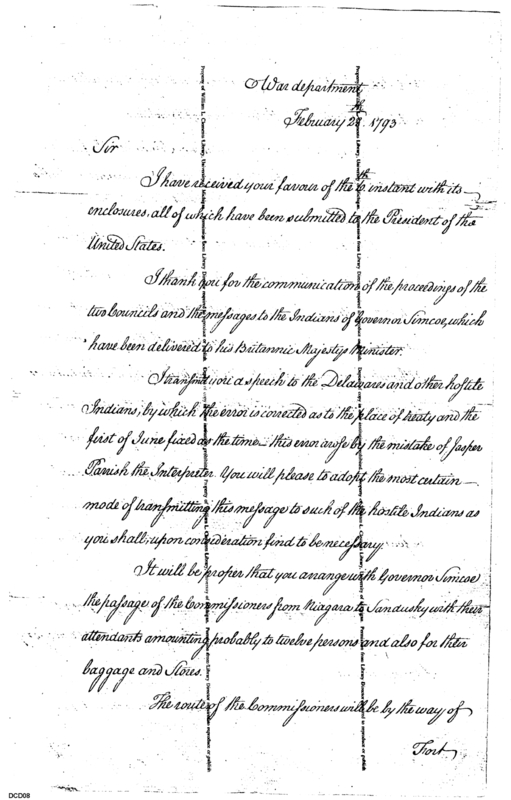 War department
February 28th 1793
Sir
I have received your favour of the 6th instant with its
enclosures, all of which have been submitted to the President of the
United States.
I thank you for the communication of the proceedings of the
two Councils and the messages to the Indians of Governor Simcoe, which
have been delivered to his Britannic Majestys Minister.
I transmit you a speech to the Delawares and other hostile
Indians, by which the error is corrected as to the place of treaty and the
first of June fixed as the time — this error arose by the mistake of Jasper
Parrish the Interpreter. You will please to adopt the most certain
mode of transmitting this message to such of the hostile Indians as
you shall, upon consideration find to be necessary.
It will be proper that you arrange with Governor Simcoe
the passage of the Commissioners from Niagara to Sandusky with their
attendants amounting probably to twelve persons and also for their
baggage and Stores.
The route of the Commissioners will be by the way of
Fort
DCD08